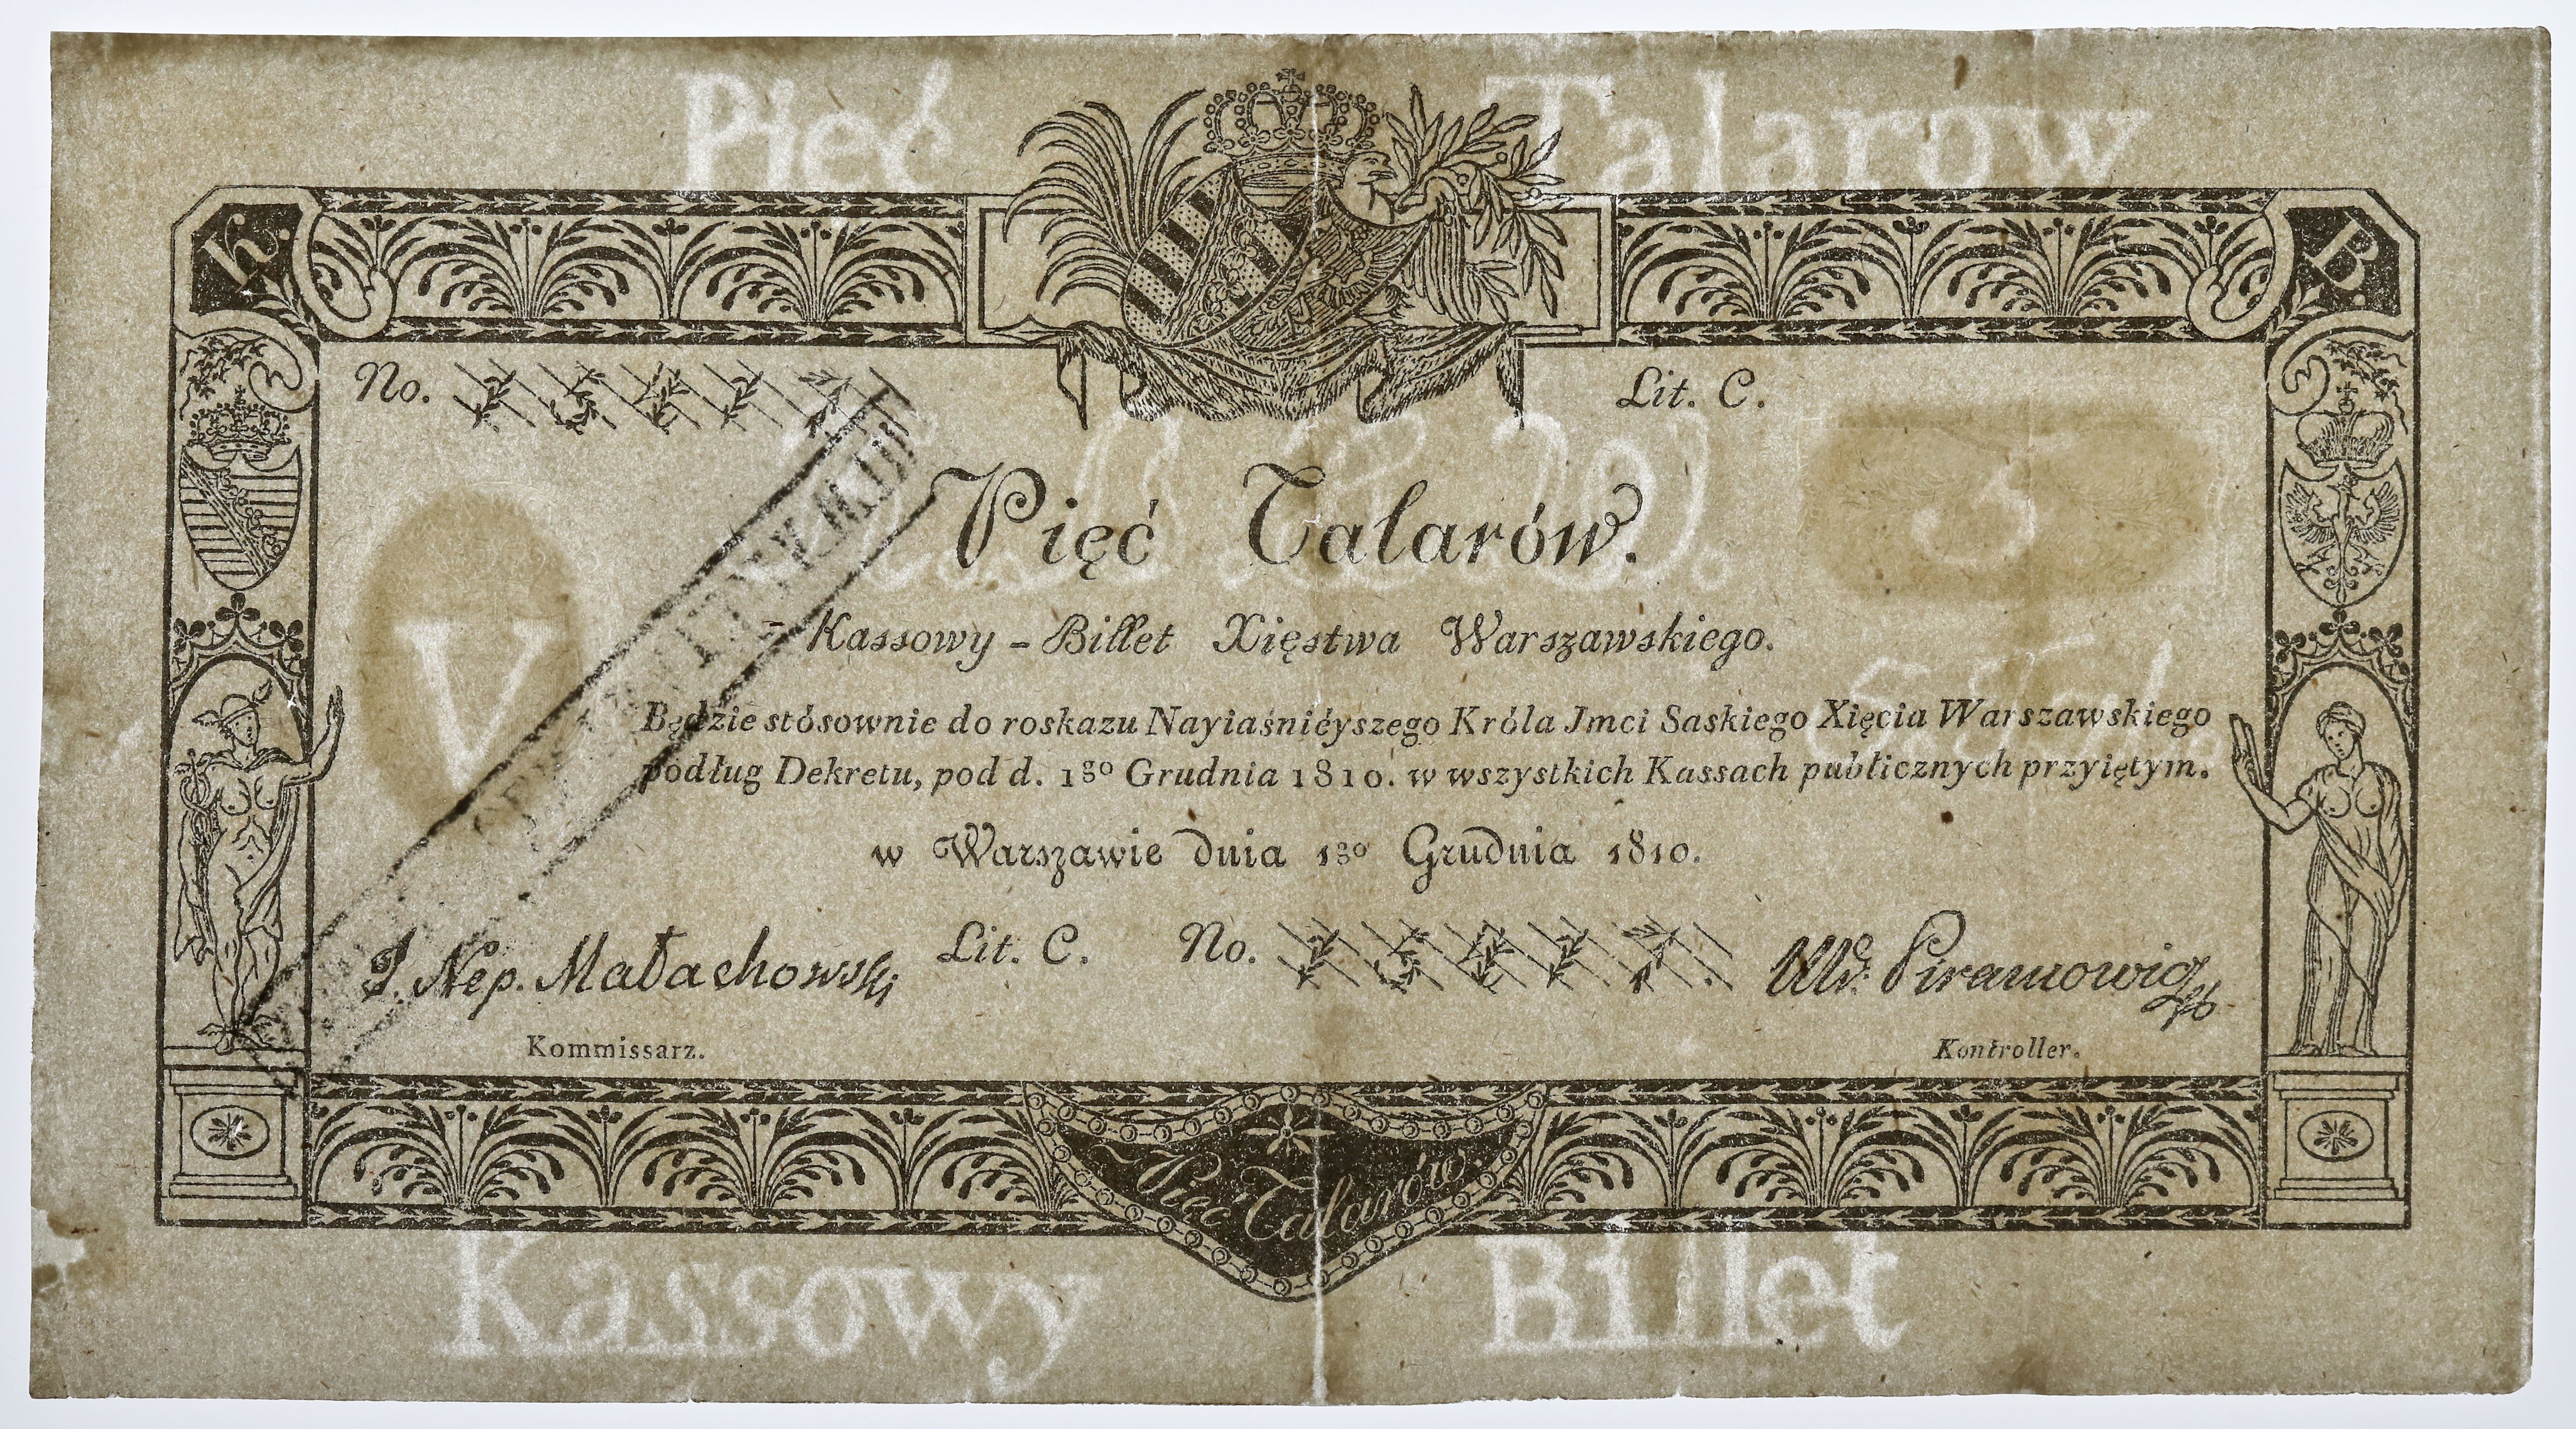 Pięć Talarow
K. B.
No. Lit. C.
Pięć Talarów.
V 5
Kassowy - Billet Xięstwa Warszawskiego.
Będzie stósownie do roskazu Nayiaśnićyszego Króla Jmci Saskiego Xięcia Warszawskiego
podług Dekretu, pod d. 1go Grudnia 1810. w wszystkich Kassach publicznych przyiętym.
w Warszawie dnia 1go Grudnia 1810.
J. Nep. Małachowski Lit. C. No. Piramowicz
Kommissarz. Kontroller.
Pięć Talarów
Kassowy Billet